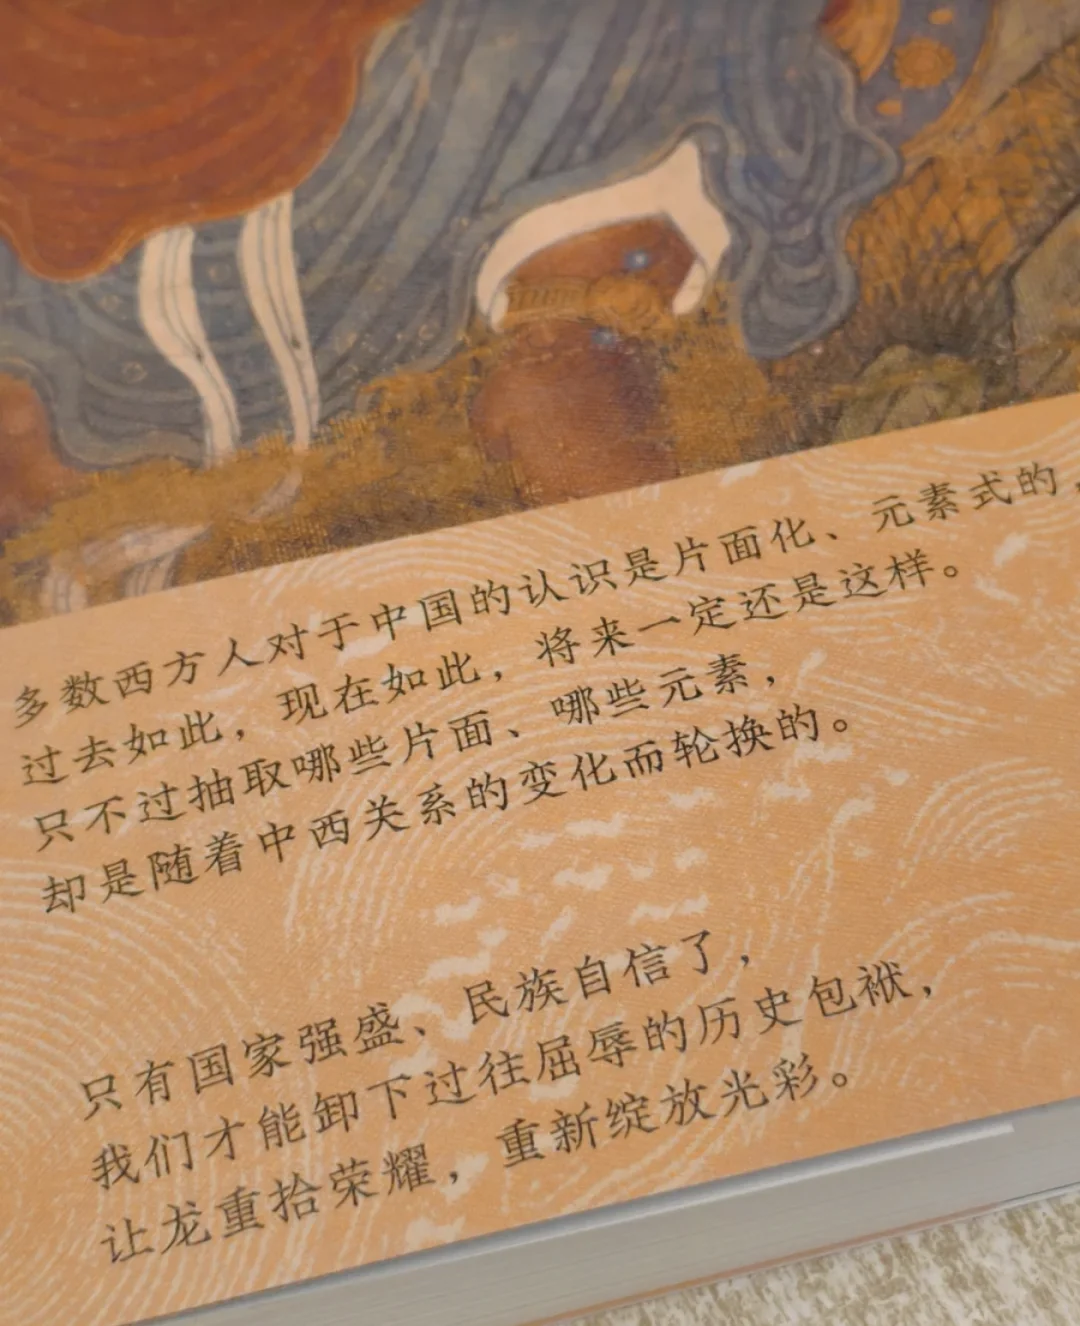 多数西方人对于中国的认识是片面化、元素式的，
过去如此，现在如此，将来一定还是这样。
只不过抽取哪些片面、哪些元素，
却是随着中西关系的变化而轮换的。
只有国家强盛、民族自信了，
我们才能卸下过往屈辱的历史包袱，
让龙重拾荣耀，重新绽放光彩。